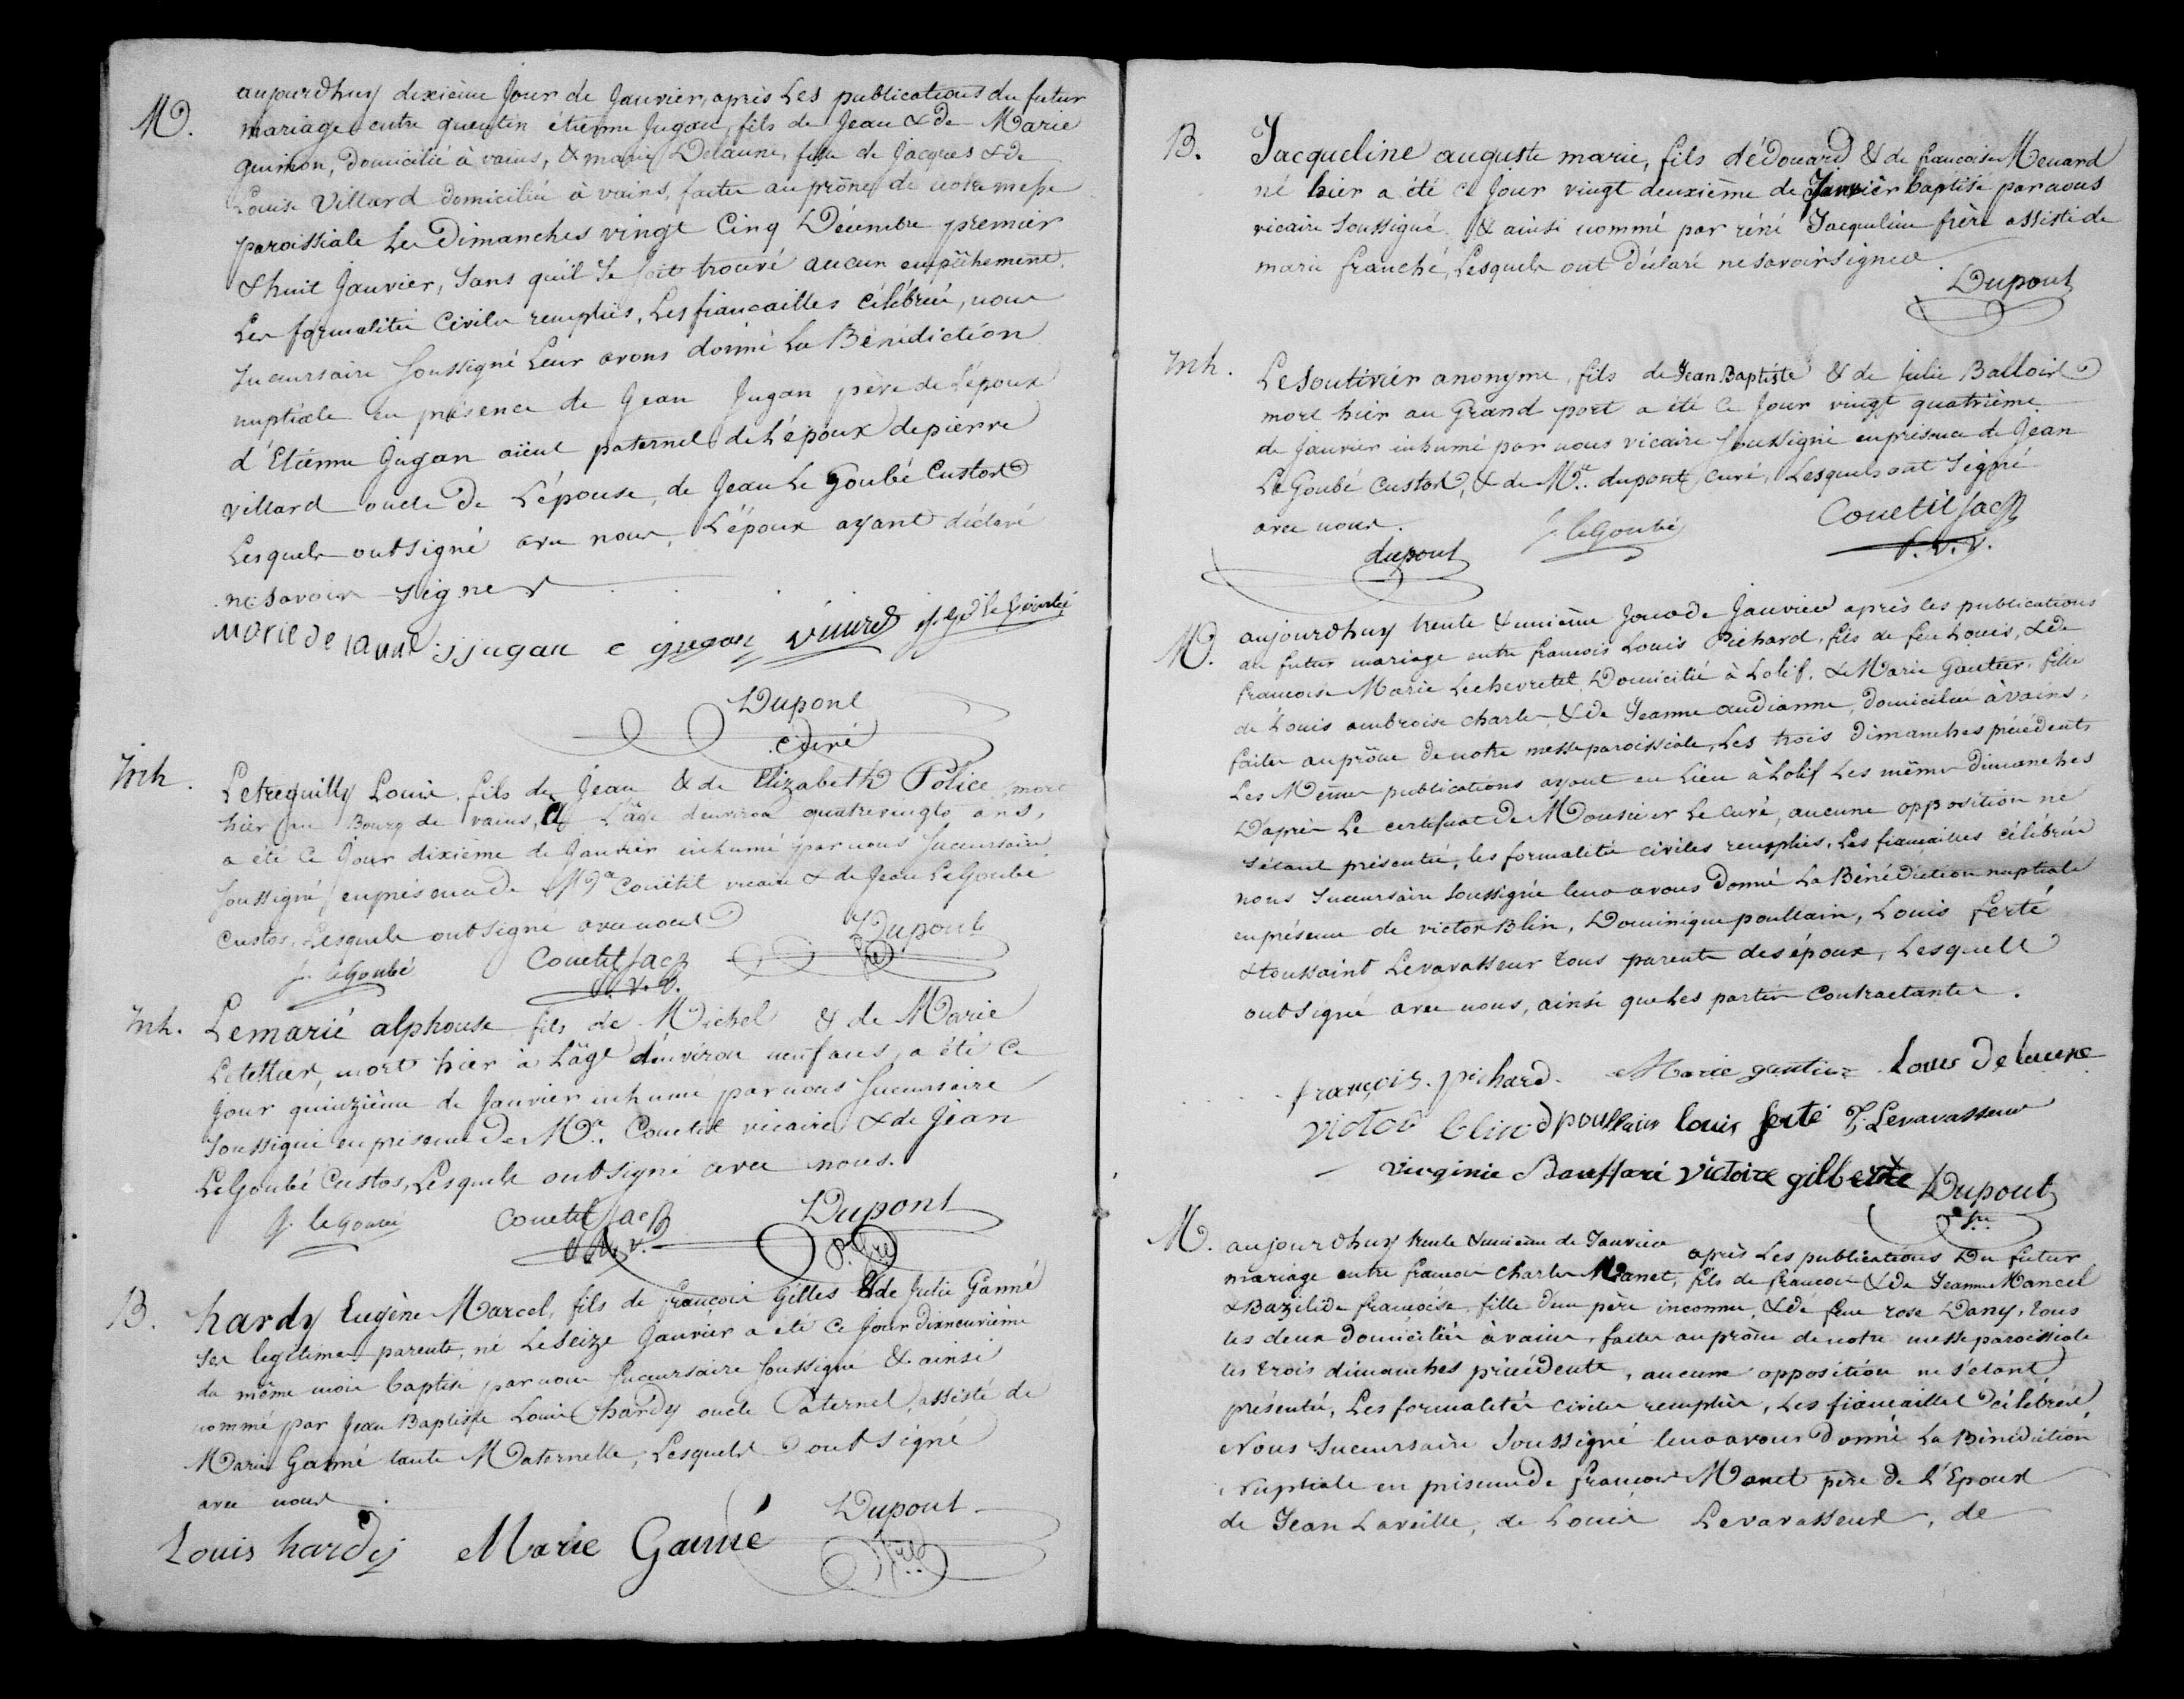 M.
aujourdhuy dixième Jour de Janvier, après Les publications du futur
mariage entre quentin étienne Jugan, fils de Jean & de Marie
quinion, Domicilié à vains, & marie Delaune, fille de Jacques & de
Louise Villard domiciliée à vains, faites au prône de notre messe
paroissiale Les Dimanches vingt Cinq Décembre premier
& huit Janvier, Sans qu'il Se soit trouvé aucun empêchement,
Les formalités Civiles remplies, Les fiancailles Célébrées, nous
Sucursaire Soussigné Leur avons donné La Bénédiction
nuptiale en présence de Jean Jugan père de L'époux
d'Etienne Jugan aieul paternel de L'époux de pierre
villard oncle De L'épouse, de Jean Le Goubé Custod
Lesquels ont signé avec nous, L'époux ayant déclaré
ne savoir signer
Marie de launé j jugan e jugan
Dupont
Curé
Inh.
Letreguilly Louis fils de Jean & de Elizabeth Police, mort
hier au Bourg de vains, à L'âge denviron quatrevingts ans,
a été Ce Jour dixième de Janvier inhumé par nous Sucursaire
Soussigné en présence de Mr Couëtil vicaire & de Jean LeGoubé
Custos, Lesquels ont Signé avec nous
Dupont
J. leGoubé Couetil
Inh.
Lemarié alphonse fils de Michel & de Marie
Letellier, mort hier à L'âge d'environ neuf ans, a été Ce
Jour quinzième de Janvier inhumé par nous Sucursaire
Soussigné en présence de Mr. Couetil vicaire & de Jean
LeGoubé Custos, Lesquels ont Signé avec nous.
J. le Goubé Couetil Dupont
B.
hardy Eugène Marcel, fils de francois Gilles & de Julie Ganné
Ses legitimes parents, né Le Seize Janvier a été Ce Jour dixneuvième
du même mois baptisé par nous Sucursaire Soussigné & ainsi
nommé par Jean Baptiste Louis hardy oncle Paternel, assisté de
Marie Ganné tante Maternelle, Lesquels ont Signé
avec nous
Dupont
Louis hardy Marie Ganné
B.
Jacqueline auguste marie, fils d'édouard & de francoise Menard
né hier a été ce Jour vingt deuxième de Janvièr baptisé par nous
vicaire Soussigné. & ainsi nommé par réné Jacqueline frère assisté de
marie franché, Lesquels ont Déclaré ne savoir signer
Dupont
Inh.
LeSoutivier anonyme, fils de Jean Baptiste & de Julie Balloir
mort hier au Grand port a été Ce Jour vingt quatrième
de Janvier inhumé par nous vicaire Soussigné en présence de Jean
Le Goubé Custod, & de Mr. dupont Curé, Lesquels ont Signé
avec nous.
dupont J. leGoubé Couetil
p. v. v.
M.
aujourdhuy trente & unième Jour de Janvier après les publications
du futur mariage entre francois Louis Pichard, fils de feu Louis, & de
francoise Marie Lechevretel Domicilié à Lolif. & Marie Gautier, fille
de Louis ambroise charles & de Jeanne audianne, domiciliée à vains,
faites au prône de notre messe paroissiale, Les trois dimanches précédents
Les Mêmes publications ayant eu Lieu à Lolif Les mêmes dimanches
D'après Le certificat de Monsieur Le Curé, aucune opposition ne
s'étant présentée, les formalités civiles remplies, Les fiancailles célébrées
nous Sucursaire Soussigné leur avons Donné La Bénédiction nuptiale
en présence de victor Blin, Dominique poullain, Louis ferté
& toussaint Levavasseur tous parents des époux, Lesquels
ont signé avec nous, ainsi que Les parties Contractantes.
françois. pichard. Marie gautier Louis Delaune
victor blin d poullain louis ferté T. Levavasseur
virginie Bauffaré victoire gilberte Dupont
M.
aujourdhuy trente & unième de Janvier après Les publications Du futur
mariage entre francois charles Manet, fils de francois & de Jeanne Mancel
& Bazilide francoise, fille d'un père inconnu & de feue rose Dany, tous
les deux domiciliés à vains, faites au prône de notre messe paroissiale
les trois dimanches précédents, aucune opposition ne s'étant
présentée, Les formalités civiles remplies, Les fiancailles célébrées,
Nous Sucursaire Soussigné leur avons Donné La Bénédiction
Nuptiale en présence de francois Manet père de L'Epoux
de Jean Laveille, de Louis Levavasseur, de